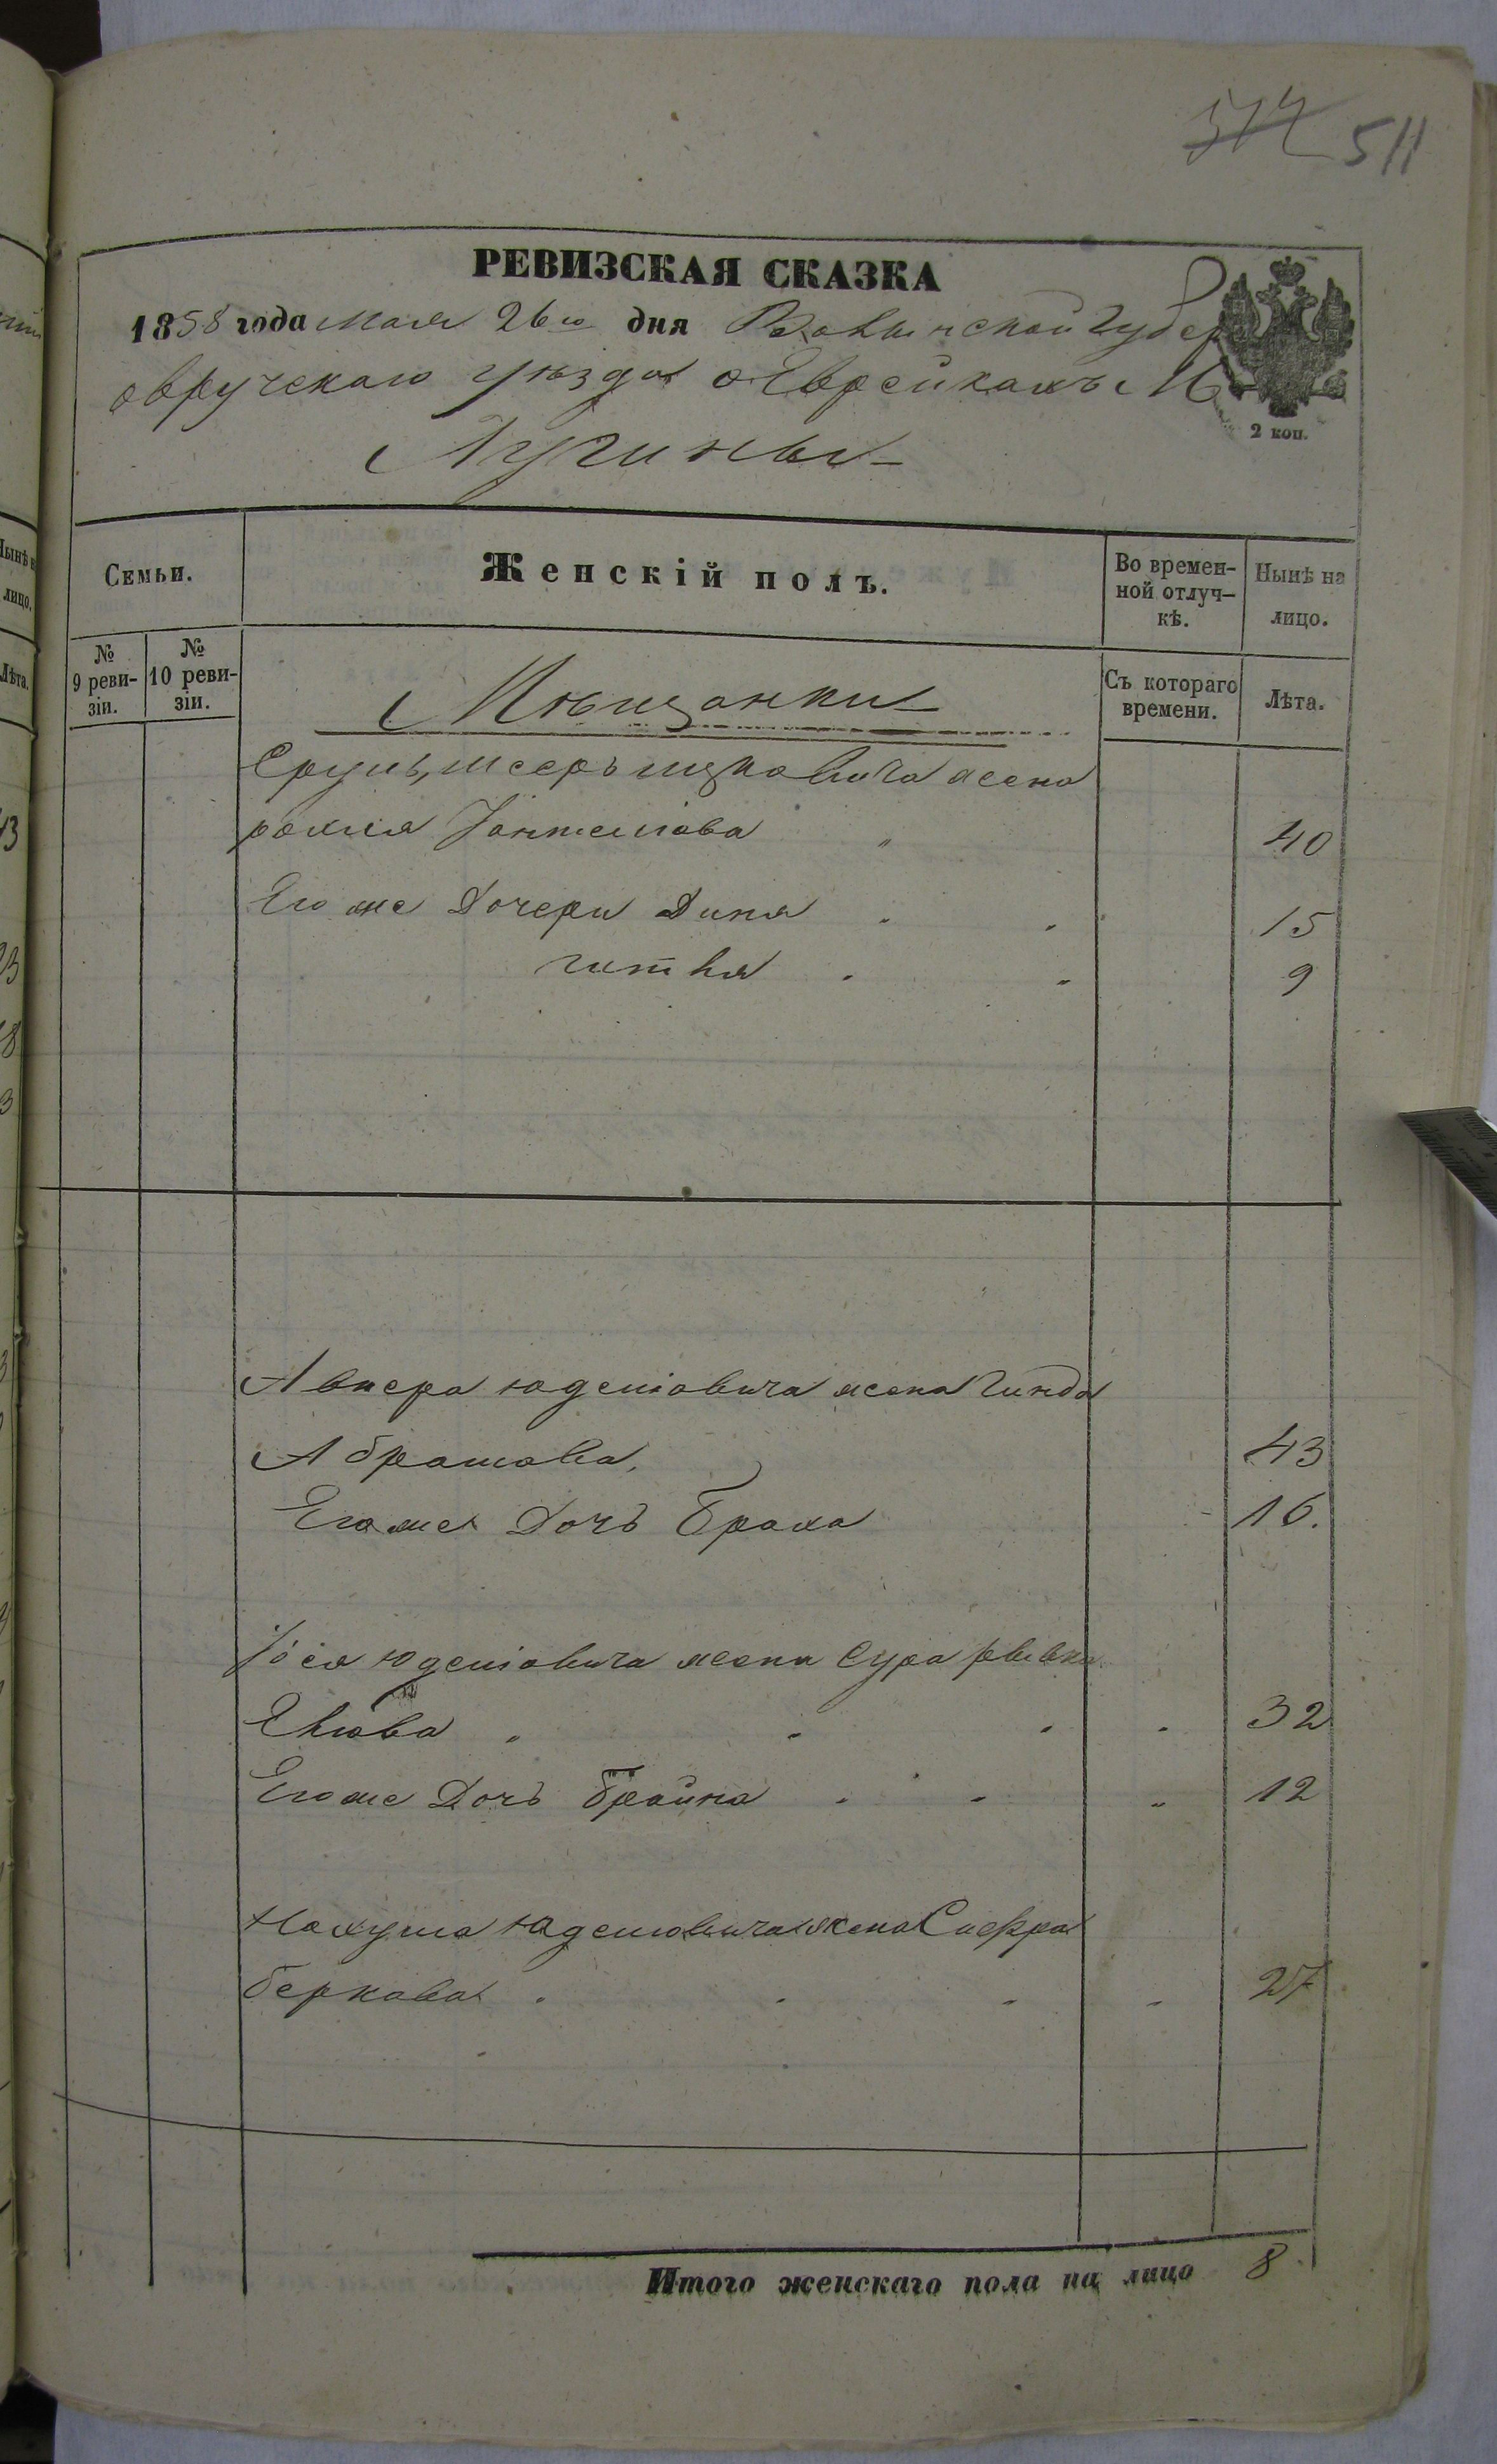 511
РЕВИЗСКАЯ СКАЗКА
1858 года мая 26го дня Волынской Губер
овручскаго уѣзда о Еврейкахъ М
Лугины
2 коп.
Семьи.
Женскій полъ.
Во времен-
ной отлуч-
кѣ.
Нынѣ на
лицо.
№
9 реви-
зіи.
№
10 реви-
зіи.
Съ котораго
времени.
Лѣта.
Мѣщанки
Ицковича жена
рохля 40
Его же Дочери Диня 15
гитля 9
Авнера юделіовича жена Гинда
Абрамова, 43
Его же Дочь Браха 16.
Іося юделіовича жена Сура ривка
Елiова 32
Его же Дочь Брайна 12
Нахума юделіовича жена Сифра
беркова 27
Итого женскаго пола на лицо 8